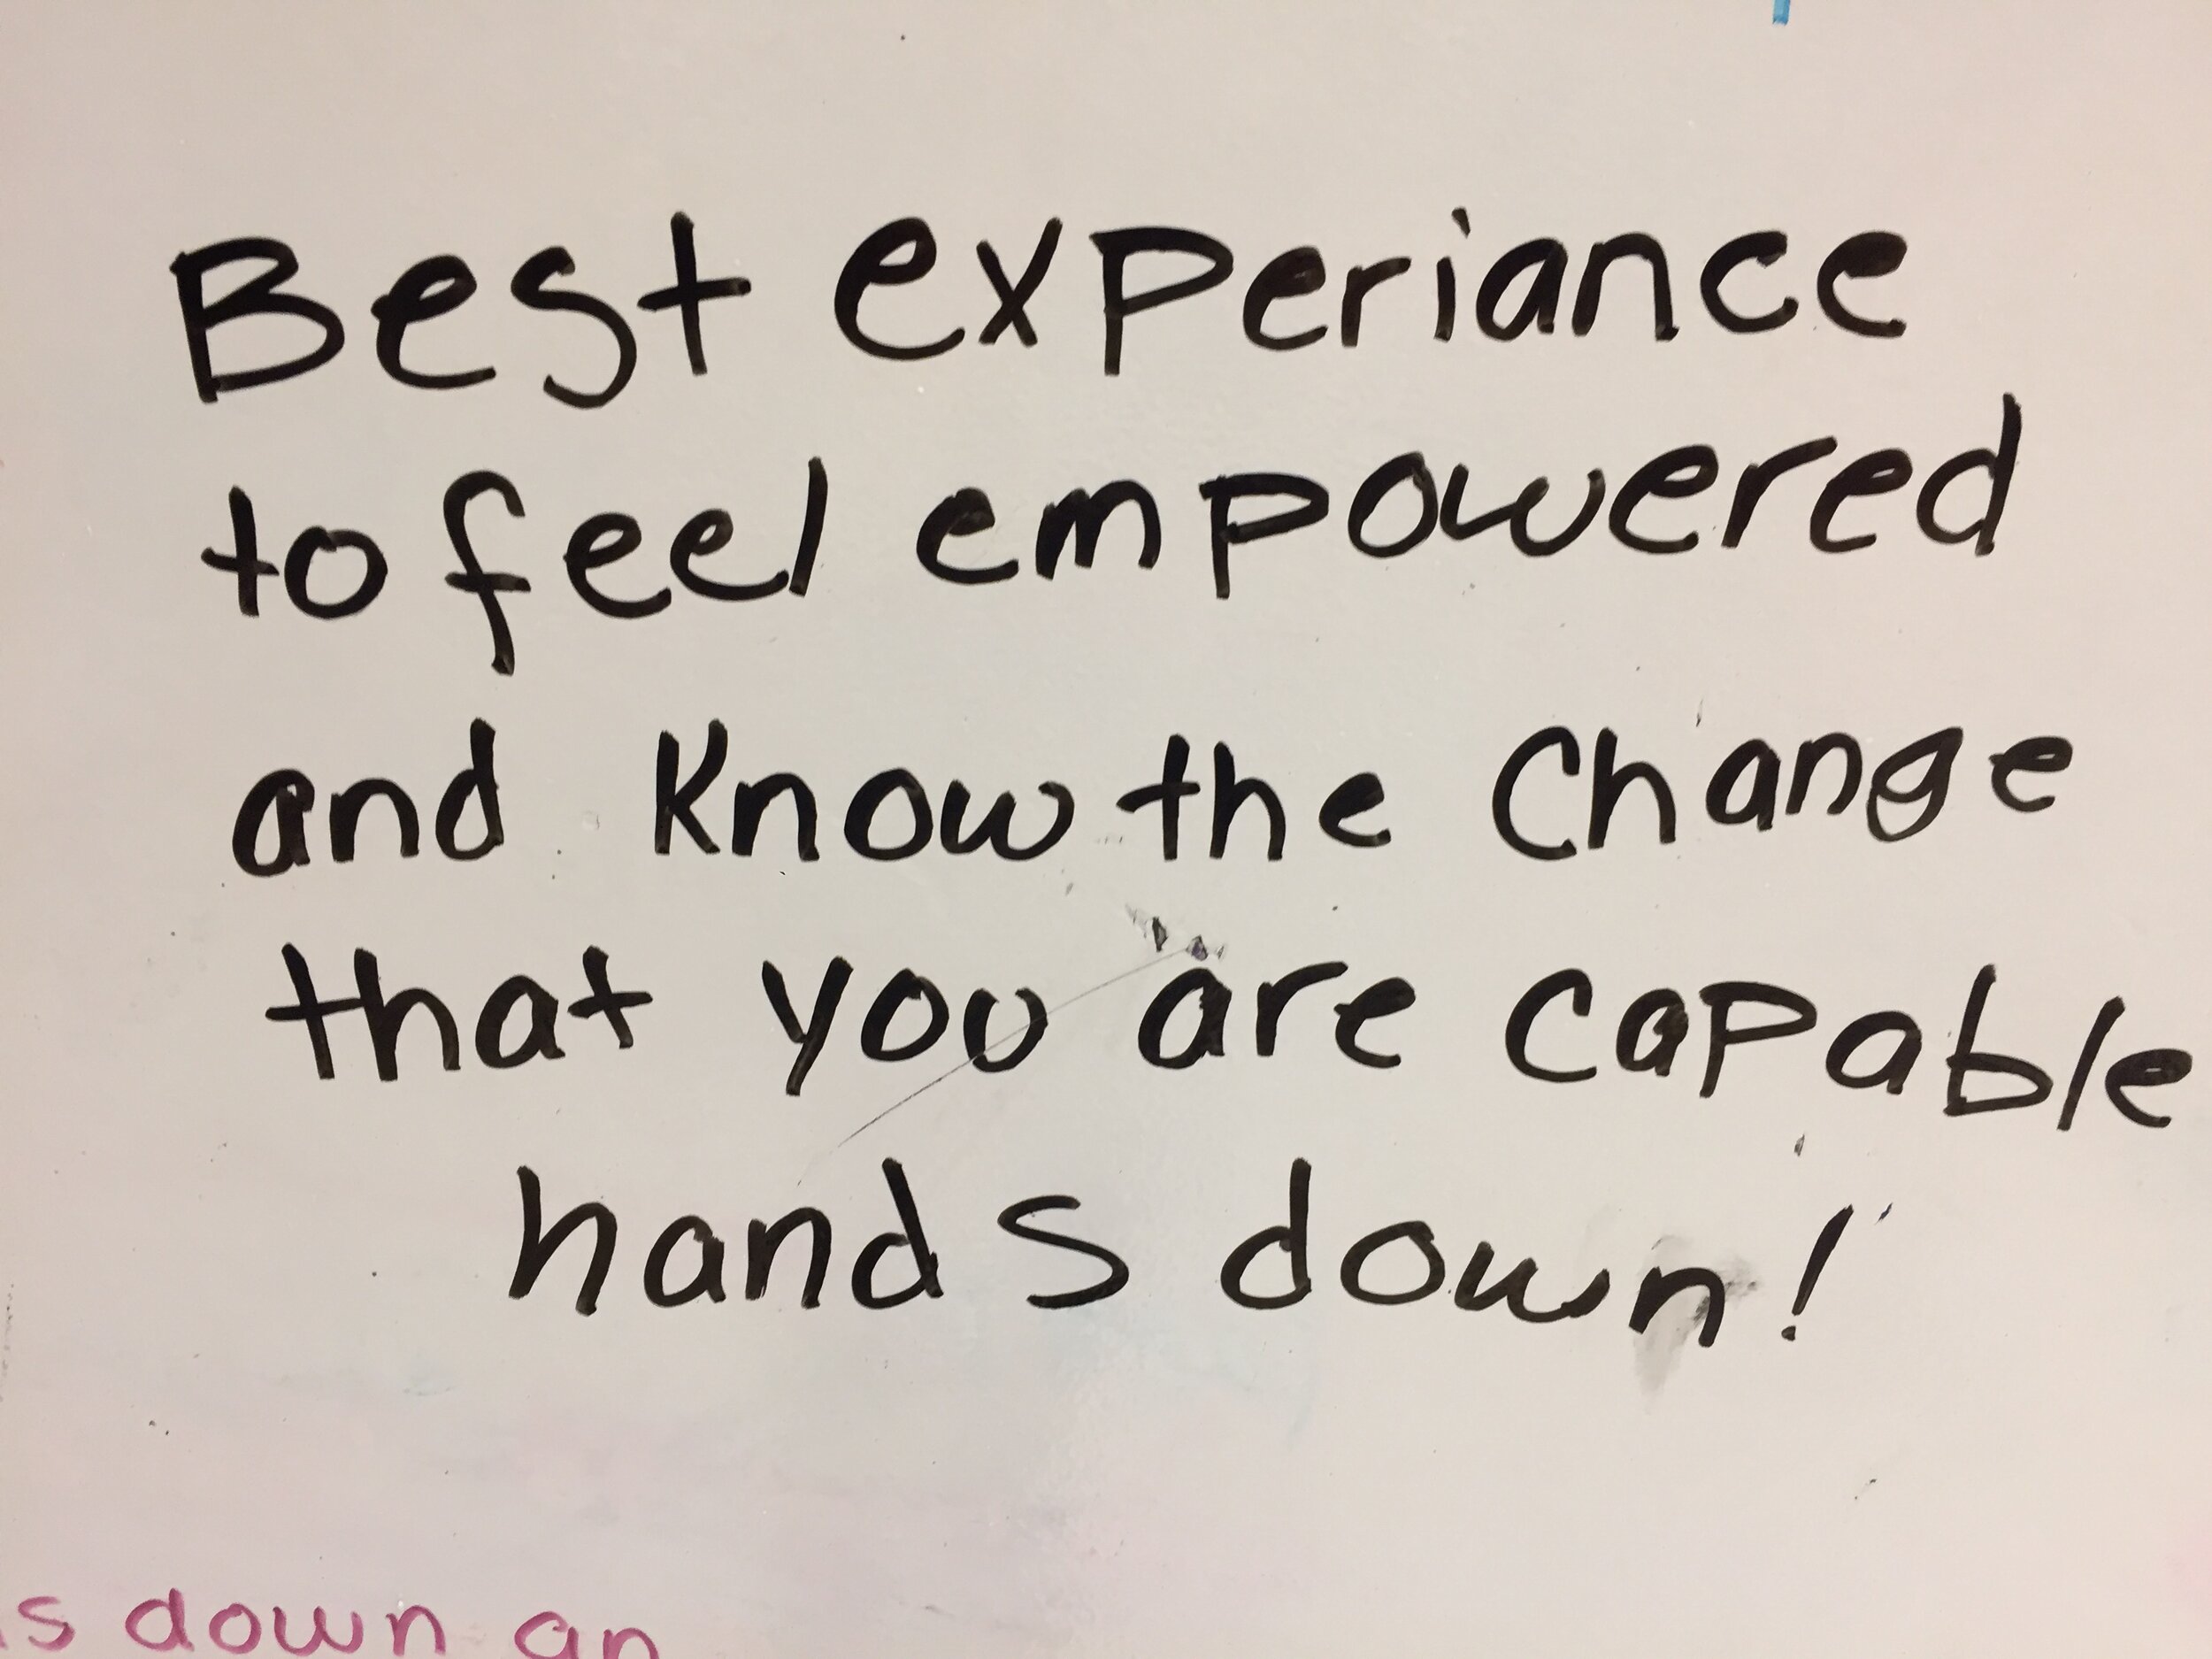 Best experiance
to feel empowered
and know the Change
that you are capable
hands down!
s down an